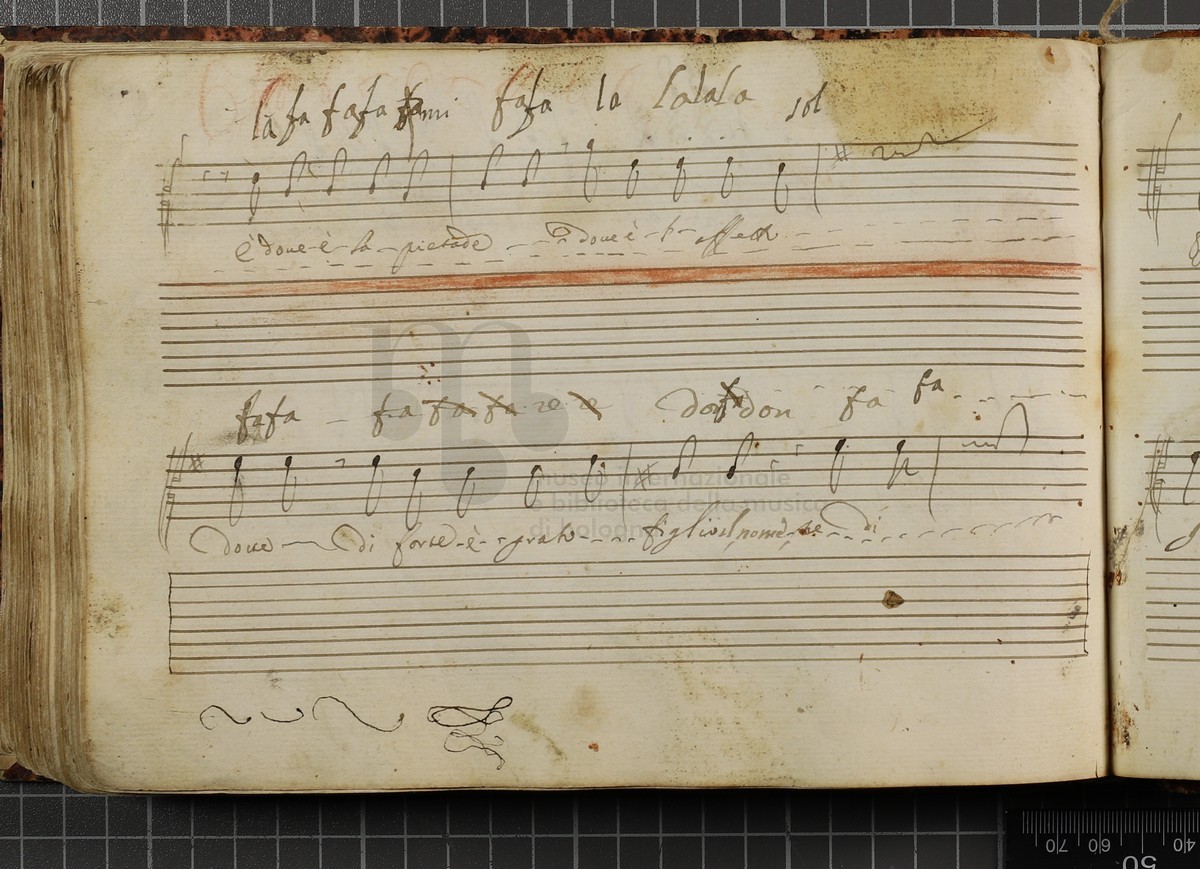 la fa fafa fa mi fafa la lalala sol
È doue è la pietade doue è
fafa fa fa fa re re don fa don fa fa
doue di forse è grato figlio il nome se di
museo internazionale
e biblioteca della musica
di bologna
70 60 50 40